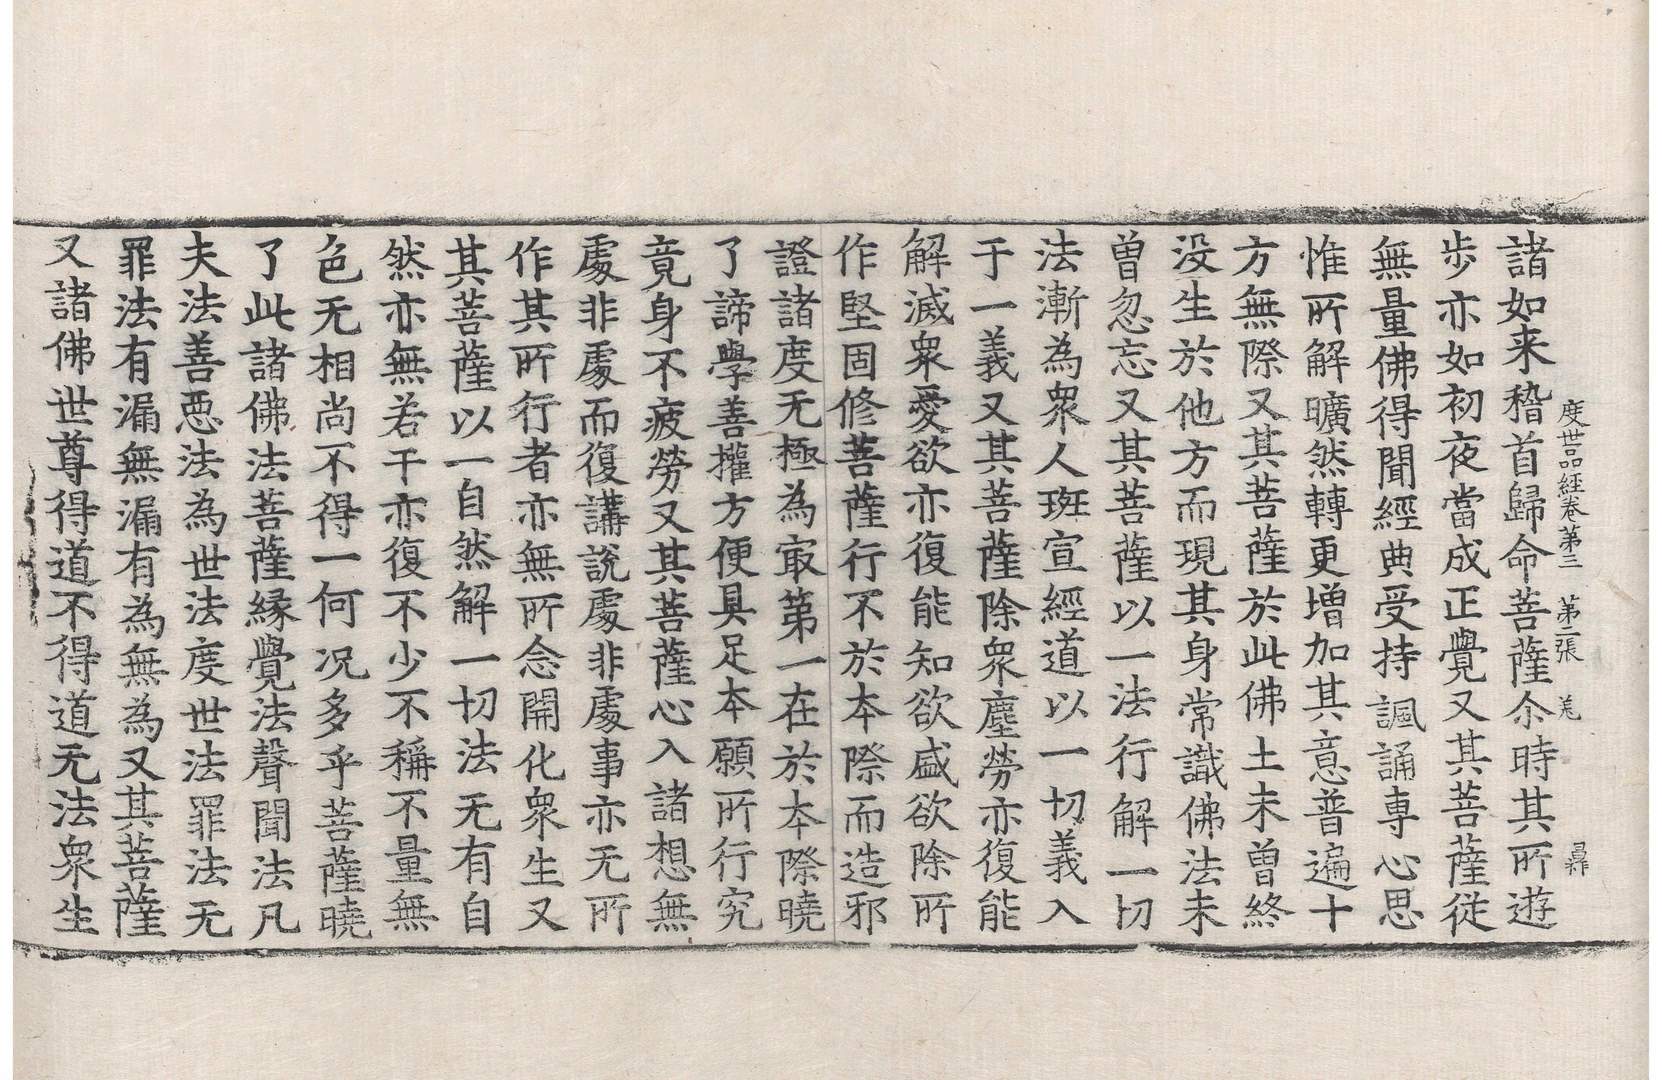 度世品経卷第三 第二張 𠒎
諸如来稽首歸命菩薩尒時其所遊
步亦如初夜當成正覺又其菩薩從
無量佛得聞經典受持諷誦專心思
惟所解曠然轉更增加其意普遍十
方無際又其菩薩於此佛土未曾終
没生於他方而現其身常識佛法未
曾忽忘又其菩薩以一法行解一切
法漸為衆人班宣經道以一切義入
于一義又其菩薩除衆塵勞亦復能
解滅衆愛欲亦復能知欲盛欲除所
作堅固修菩薩行不於本際而造邪
證諸度无極為㝡第一在於本際曉
了諦學善攉方便具足本願所行究
竟身不疲勞又其菩薩心入諸想無
處非處而復講說處非處事亦无所
作其所行者亦無所念開化衆生又
其菩薩以一自然解一切法无有自
然亦無若干亦復不少不稱不量無
色无相尚不得一何况多乎菩薩曉
了此諸佛法菩薩縁覺法聲聞法凡
夫法善惡法為世法度世法罪法无
罪法有漏無漏有為無為又其菩薩
又諸佛世尊得道不得道无法衆生